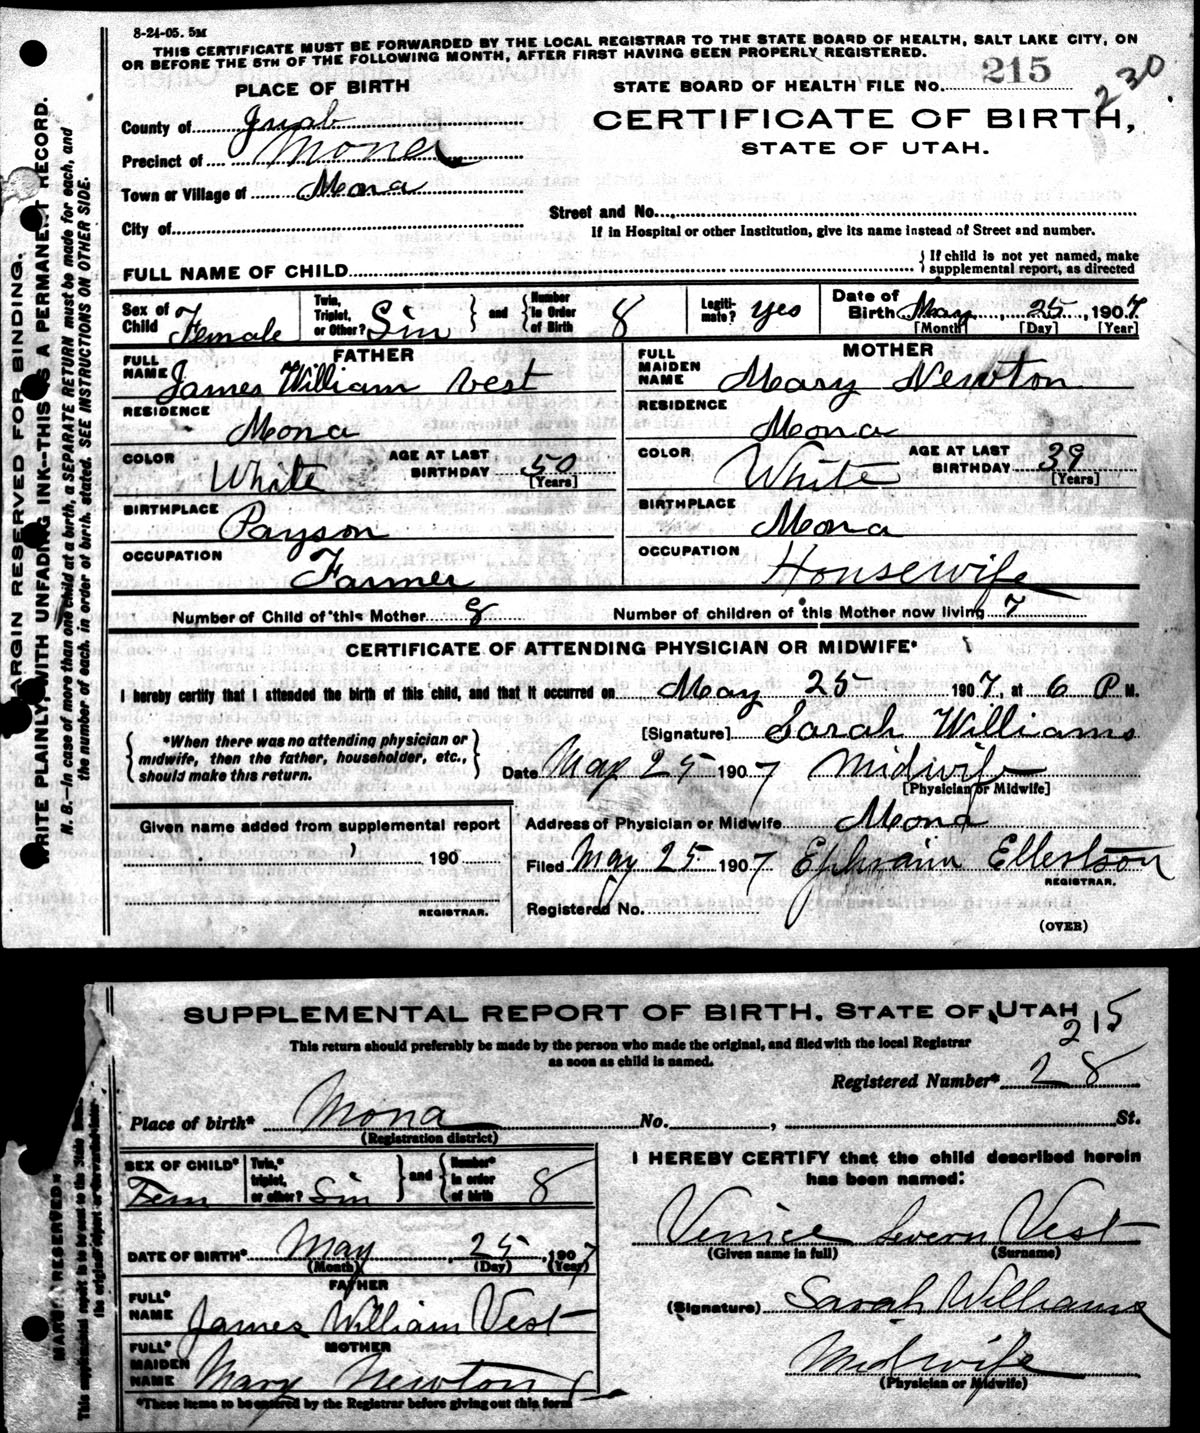 8-24-05. 5M
THIS CERTIFICATE MUST BE FORWARDED BY THE LOCAL REGISTRAR TO THE STATE BOARD OF HEALTH, SALT LAKE CITY, ON
OR BEFORE THE 5TH OF THE FOLLOWING MONTH, AFTER FIRST HAVING BEEN PROPERLY REGISTERED.
PLACE OF BIRTH
STATE BOARD OF HEALTH FILE No. 215
230
County of Juab
CERTIFICATE OF BIRTH,
Precinct of Mona
STATE OF UTAH.
Town or Village of Mona
Street and No.
City of
If in Hospital or other Institution, give its name instead of Street and number.
FULL NAME OF CHILD
If child is not yet named, make
supplemental report, as directed
Sex of Child Female
Twin, Triplet, or Other? Sin
and Number in Order of Birth 8
Legitimate? yes
Date of Birth May 25, 1907
[Month] [Day] [Year]
FATHER
FULL NAME James William Vest
RESIDENCE Mona
COLOR White
AGE AT LAST BIRTHDAY 50 [Years]
BIRTHPLACE Payson
OCCUPATION Farmer
MOTHER
FULL MAIDEN NAME Mary Newton
RESIDENCE Mona
COLOR White
AGE AT LAST BIRTHDAY 39 [Years]
BIRTHPLACE Mona
OCCUPATION Housewife
Number of Child of this Mother 8
Number of children of this Mother now living 7
CERTIFICATE OF ATTENDING PHYSICIAN OR MIDWIFE*
I hereby certify that I attended the birth of this child, and that it occurred on May 25 1907, at 6 P M.
[Signature] Sarah Williams
*When there was no attending physician or
midwife, then the father, householder, etc.,
should make this return.
Date May 25 1907 Midwife
[Physician or Midwife]
Given name added from supplemental report
190
REGISTRAR.
Address of Physician or Midwife Mona
Filed May 25 1907 Ephraim Ellertson
REGISTRAR.
Registered No.
(OVER)
MARGIN RESERVED FOR BINDING.
WRITE PLAINLY WITH UNFADING INK--THIS IS A PERMANENT RECORD.
N. B.--In case of more than one child at a birth, a SEPARATE RETURN must be made for each, and
the number of each, in order of birth, stated. SEE INSTRUCTIONS ON OTHER SIDE.
SUPPLEMENTAL REPORT OF BIRTH. STATE OF UTAH
215
This return should preferably be made by the person who made the original, and filed with the local Registrar
as soon as child is named.
Registered Number* 28
Place of birth* Mona No. , St.
(Registration district)
SEX OF CHILD* Fem
Twin,* triplet, or other? Sin
and Number* in order of birth 8
I HEREBY CERTIFY that the child described herein
has been named:
Venice Severn Vest
(Given name in full) (Surname)
DATE OF BIRTH* May 25, 1907
(Month) (Day) (Year)
FATHER
FULL* NAME James William Vest
(Signature) Sarah Williams
MOTHER
FULL* MAIDEN NAME Mary Newton
Midwife
(Physician or Midwife)
*These items to be entered by the Registrar before giving out this form